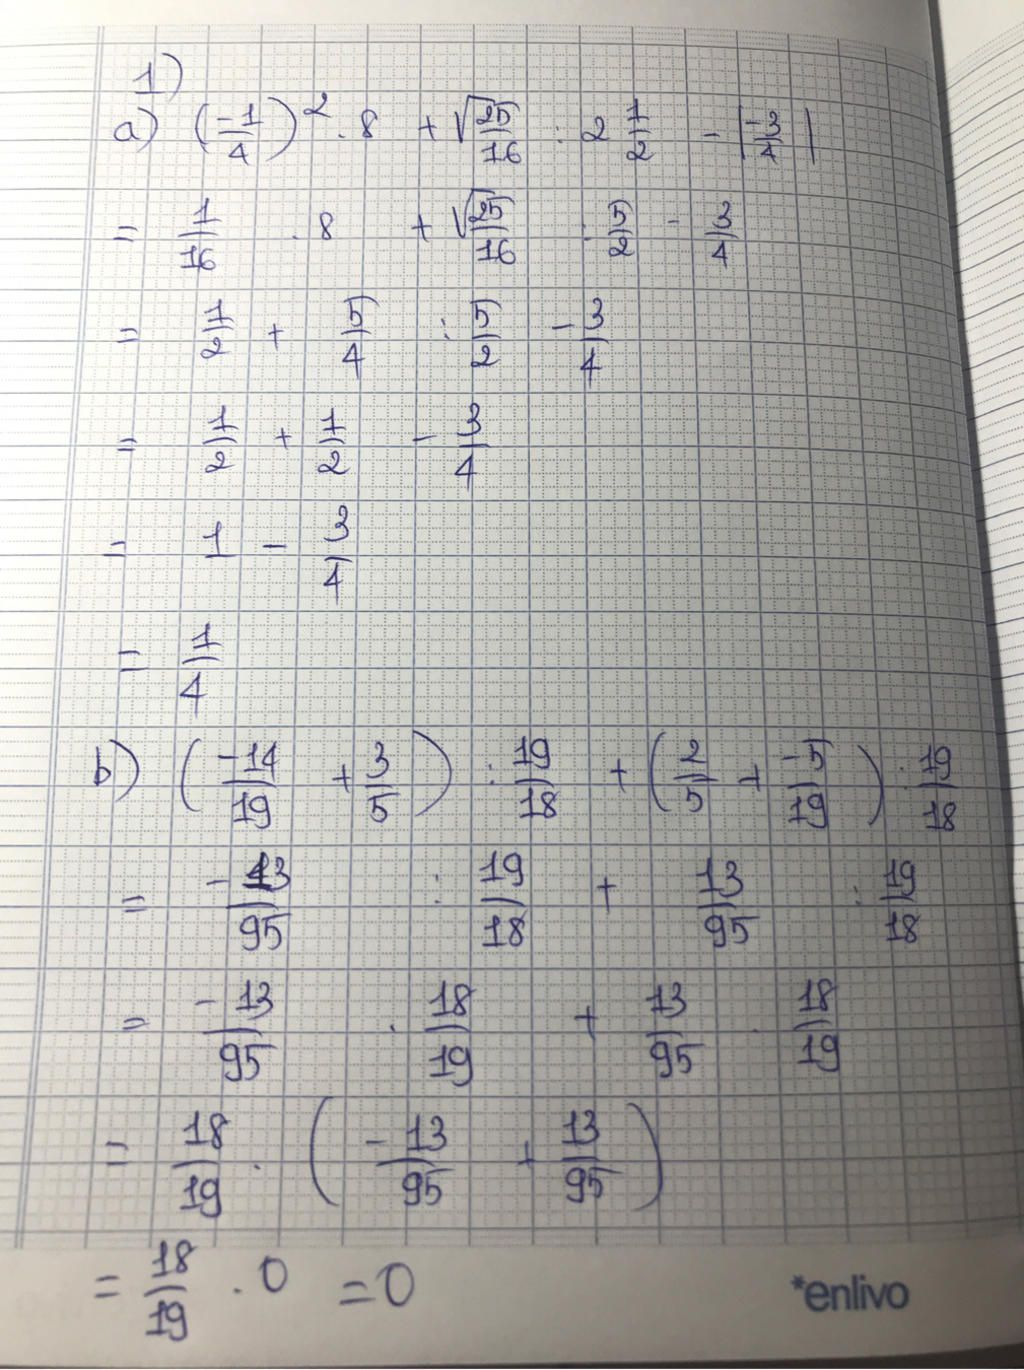 1)
a) (-1/4)² . 8 + √25/16 : 2 1/2 - |-3/4|
= 1/16 . 8 + √25/16 : 5/2 - 3/4
= 1/2 + 5/4 : 5/2 - 3/4
= 1/2 + 1/2 - 3/4
= 1 - 3/4
= 1/4
b) (-14/19 + 3/5) : 19/18 + (2/5 + -5/19) : 19/18
= -13/95 : 19/18 + 13/95 : 19/18
= -13/95 . 18/19 + 13/95 . 18/19
= 18/19 . (-13/95 + 13/95)
= 18/19 . 0 = 0
*enlivo